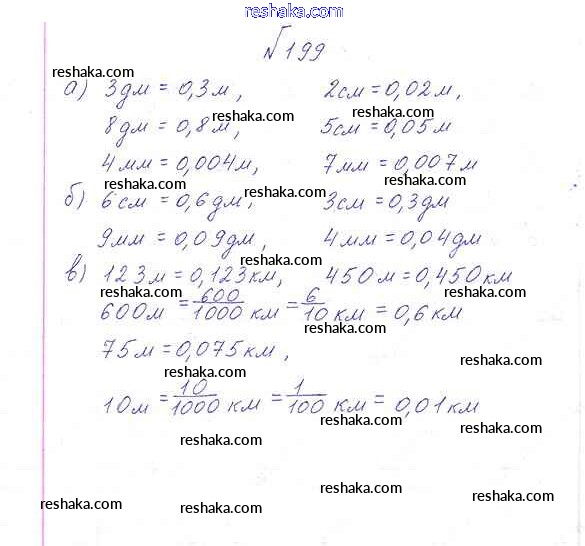 reshaka.com
№199
reshaka.com
а) 3дм = 0,3м, 2см = 0,02м,
reshaka.com reshaka.com
8дм = 0,8м, 5см = 0,05м
reshaka.com
4мм = 0,004м, 7мм = 0,007м
reshaka.com reshaka.com reshaka.com
б) 6см = 0,6дм, 3см = 0,3дм
9мм = 0,09дм, 4мм = 0,04дм
reshaka.com
в) 123м = 0,123км, 450м = 0,450км
reshaka.com reshaka.com
600м = 600/1000 км = 6/10 км = 0,6км
75м = 0,075км,
reshaka.com
reshaka.com
10м = 10/1000 км = 1/100 км = 0,01км
reshaka.com
reshaka.com
reshaka.com
reshaka.com
reshaka.com